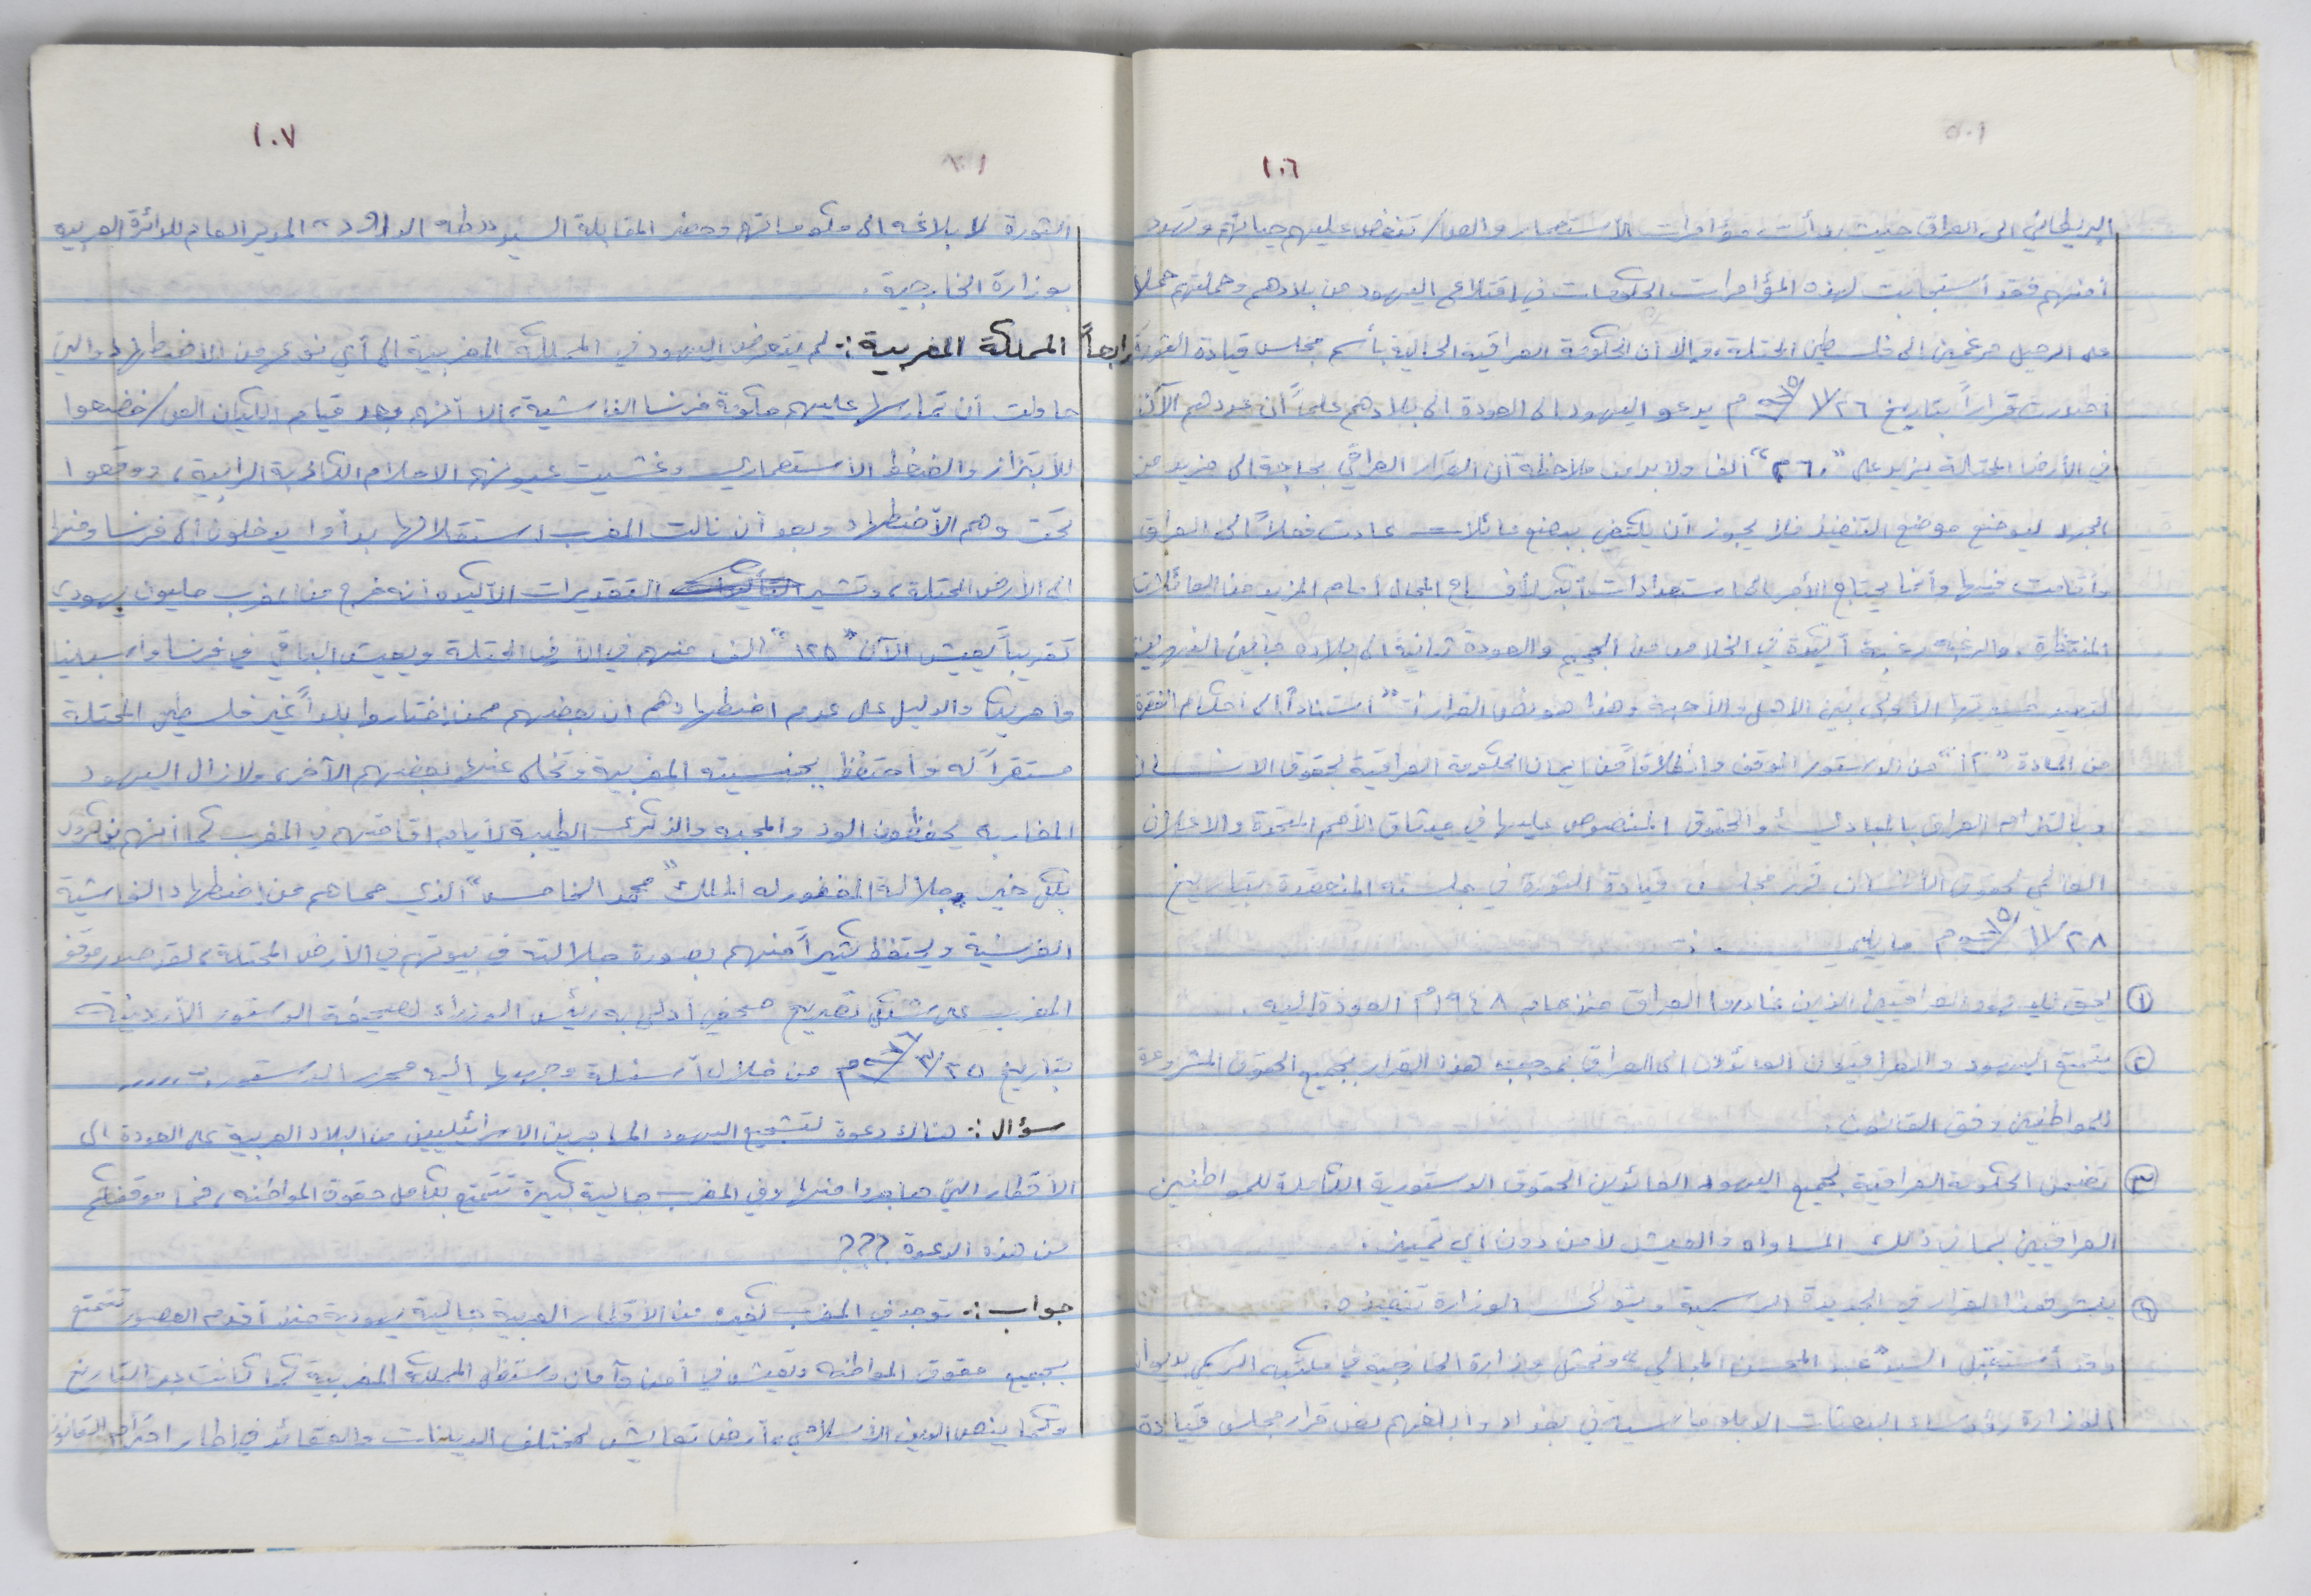 ١٠٦
البريطاني الى العراق حيث بدأت مؤامرات الأستعمار والعرا/ تنغص عليهم حياتهم وتهدد
أمنهم فقد أستجابت لهذه المؤامرات الحكومات في اقتلاع اليهود من بلادهم وحملتهم حملا
على الرحيل مرغمين الى فلسطين المحتلة، الا أن الحكومة العراقية الحالية بأسم مجلس قيادة الثورة
أصدرت قراراً بتاريخ ١/٢٦ م يدعو اليهود الى العودة الى بلادهم علماً أن عددهم الآن
في الأرض المحتلة يزيد على "٢٦٠" ألفا ولا بد من ملاحظة أن القرار العراقي بحاجة الى مزيد من
الجهد ليوضع موضع التنفيذ فلا يجوز أن يكتفى ببضع عائلات عادت فعلاً الى العراق
وأقامت فيها وأنما يحتاج الأمر الى استعدادات أكبر لأفساح المجال أمام المزيد من العائلات
المنتظرة، والرغبة رغبة أكيدة في الخلاص من الجحيم والعودة ثانية الى بلاده مابين النهرين
لتعيد سيرتها الأولى بين الاهل والأحبة وهذا هو نص القرار :- "أستناداً الى أحكام الفقرة
من المادة "٤٢" من الدستور المؤقت وأنطلاقاً من ايمان الحكومة العراقية بحقوق الانسان
وبالتزام العراق بالمبادىء والحقوق المنصوص عليها في ميثاق الأمم المتحدة والاعلان
العالمي لحقوق الأنسان قرر مجلس قيادة الثورة في جلسته المنعقدة بتاريخ
١١/٢٨ م مايلي :-
١ يحق لليهود العراقيين الذين غادروا العراق منذ عام ١٩٤٨م العودة اليه.
٢ يتمتع اليهود العراقيون العائدون الى العراق بموجب هذا القرار بجميع الحقوق المشروعة
للمواطنين وفق القانون.
٣ تضمن الحكومة العراقية لجميع اليهود العائدين الحقوق الدستورية الكاملة للمواطنين
العراقيين بما في ذلك المساواه والعيش الأمن دون أي تمييز.
٤ ينشر هذا القرار في الجريدة الرسمية ويتولى الوزارة تنفيذه.
وقد أستقبل السيد "عبد المحسن الجيالي" وممثل وزارة الخارجية في مكتبه الرسمي بديوان
الوزارة رؤوساء البعثات الدبلوماسية في بغداد وأبلغهم نص قرار مجلس قيادة
١٠٧
الثورة لابلاغه الى حكوماتهم وحضر المقابلة السيد "طه الداؤد" المدير العام للدائرة العربيه
بوزارة الخارجية.
رابعاً المملكة المغربية :- لم يتعرض اليهود في المملكة المغربية الى أي نوع من الاضطهاد والتي
حاولت أن تمارسها عليهم حكومة فرنسا الفاشية، الا أنهم وبعد قيام الكيان العرا/ خضعوا
للأبتزاز والضغط الأستعماري وغشيت عيونهم الاحلام الكاذبة الرايية، ووقعوا
تحت وهم الأضطهاد وبعد أن نالت المغرب استقلالها بدأوا يدخلون الى فرنسا ومنها
الى الأرض المحتلة، وتشير التقديرات الأكيده أنه خرج من المغرب مليون يهودي
تقريباً يعيش الآن "١٢٥" الف منهم في الأرض المحتلة ويعيش الباقي في فرنسا واسبانيا
وأمريكا والدليل على عدم اضطهادهم ان بعضهم ممن إختاروا بلداً غير فلسطين المحتلة
مستقراً له وأحتفظ بجنسيته المغربية وتخلى عنها بعضهم الآخر، ولازال اليهود
المغاربة يحفظون الود والمحبه والذكرى الطيبة لأيام اقامتهم في المغرب كما أنهم يذكرون
بكل خير جلالة المغفور له الملك "محمد الخامس" الذي حماهم من إضطهاد الفاشية
الفرنسية ويحتفظ كثيراً منهم بصورة جلالته في بيوتهم في الأرض المحتلة، لقد صدر موقف
المغرب على شكل تصريح صحفي أدلى به رئيس الوزراء لصحيفة الدستور الأردنية
بتاريخ ٣/٢٥ م من خلال أسئلة وجهها اليه محرر الدستور :- .....
سؤال :- هناك دعوة لتشجيع اليهود المهاجرين الاسرائيليين من البلاد العربية على العودة الى
الأقطار التي هاجروا منها وفي المغرب جالية كبيرة تتمتع بكامل حقوق المواطنه، فما موقفكم
من هذه الدعوة ؟؟؟
جواب :- توجد في المغرب كغيره من الاقطار العربية جالية يهودية منذ أقدم العصور تتمتع
بجميع حقوق المواطنه وتعيش في أمن وآمان وستظل المملكة المغربية كما كانت عبر التاريخ
وكما ينص الدين الأسلامي، أرض تعايش لمختلف الديانات والعقائد في إطار احترام القانون